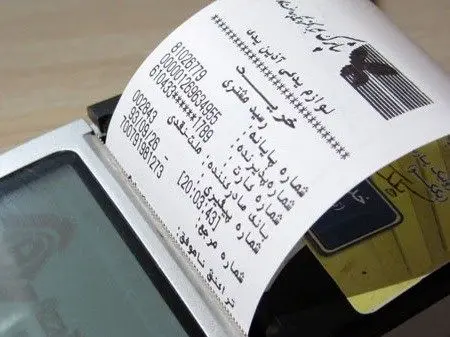 **********************
لوازم یدکی آنلاین یدن
**********************
خرید
رسید مشتری
شماره پایانه: 81026779
شماره پذیرنده: 000001269634955
شماره کارت: 610433******1789
بانک صادرکننده: ملت-نقدی
شماره پیگیری: 002843
[20:03:43] -
شماره مرجع: 700791981273
تراکنش ناموفق